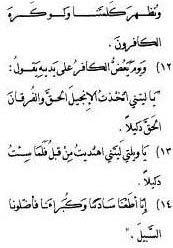 وَتَظهر كلمتنا ولو كره
الكافرون.
(١٢) وَيَومَ يَعَضُّ الكافر على يديه يقول:
"يا ليتني اتخذت الإنجيل الحقَّ والفرقان
الحقَّ دليلاً.
(١٣) يا ويلتي ليتني اهتديت من قبل
دليلاً.
(١٤) إنا أطعنا سادتنا وكبراءنا فأضلونا
السبيل".